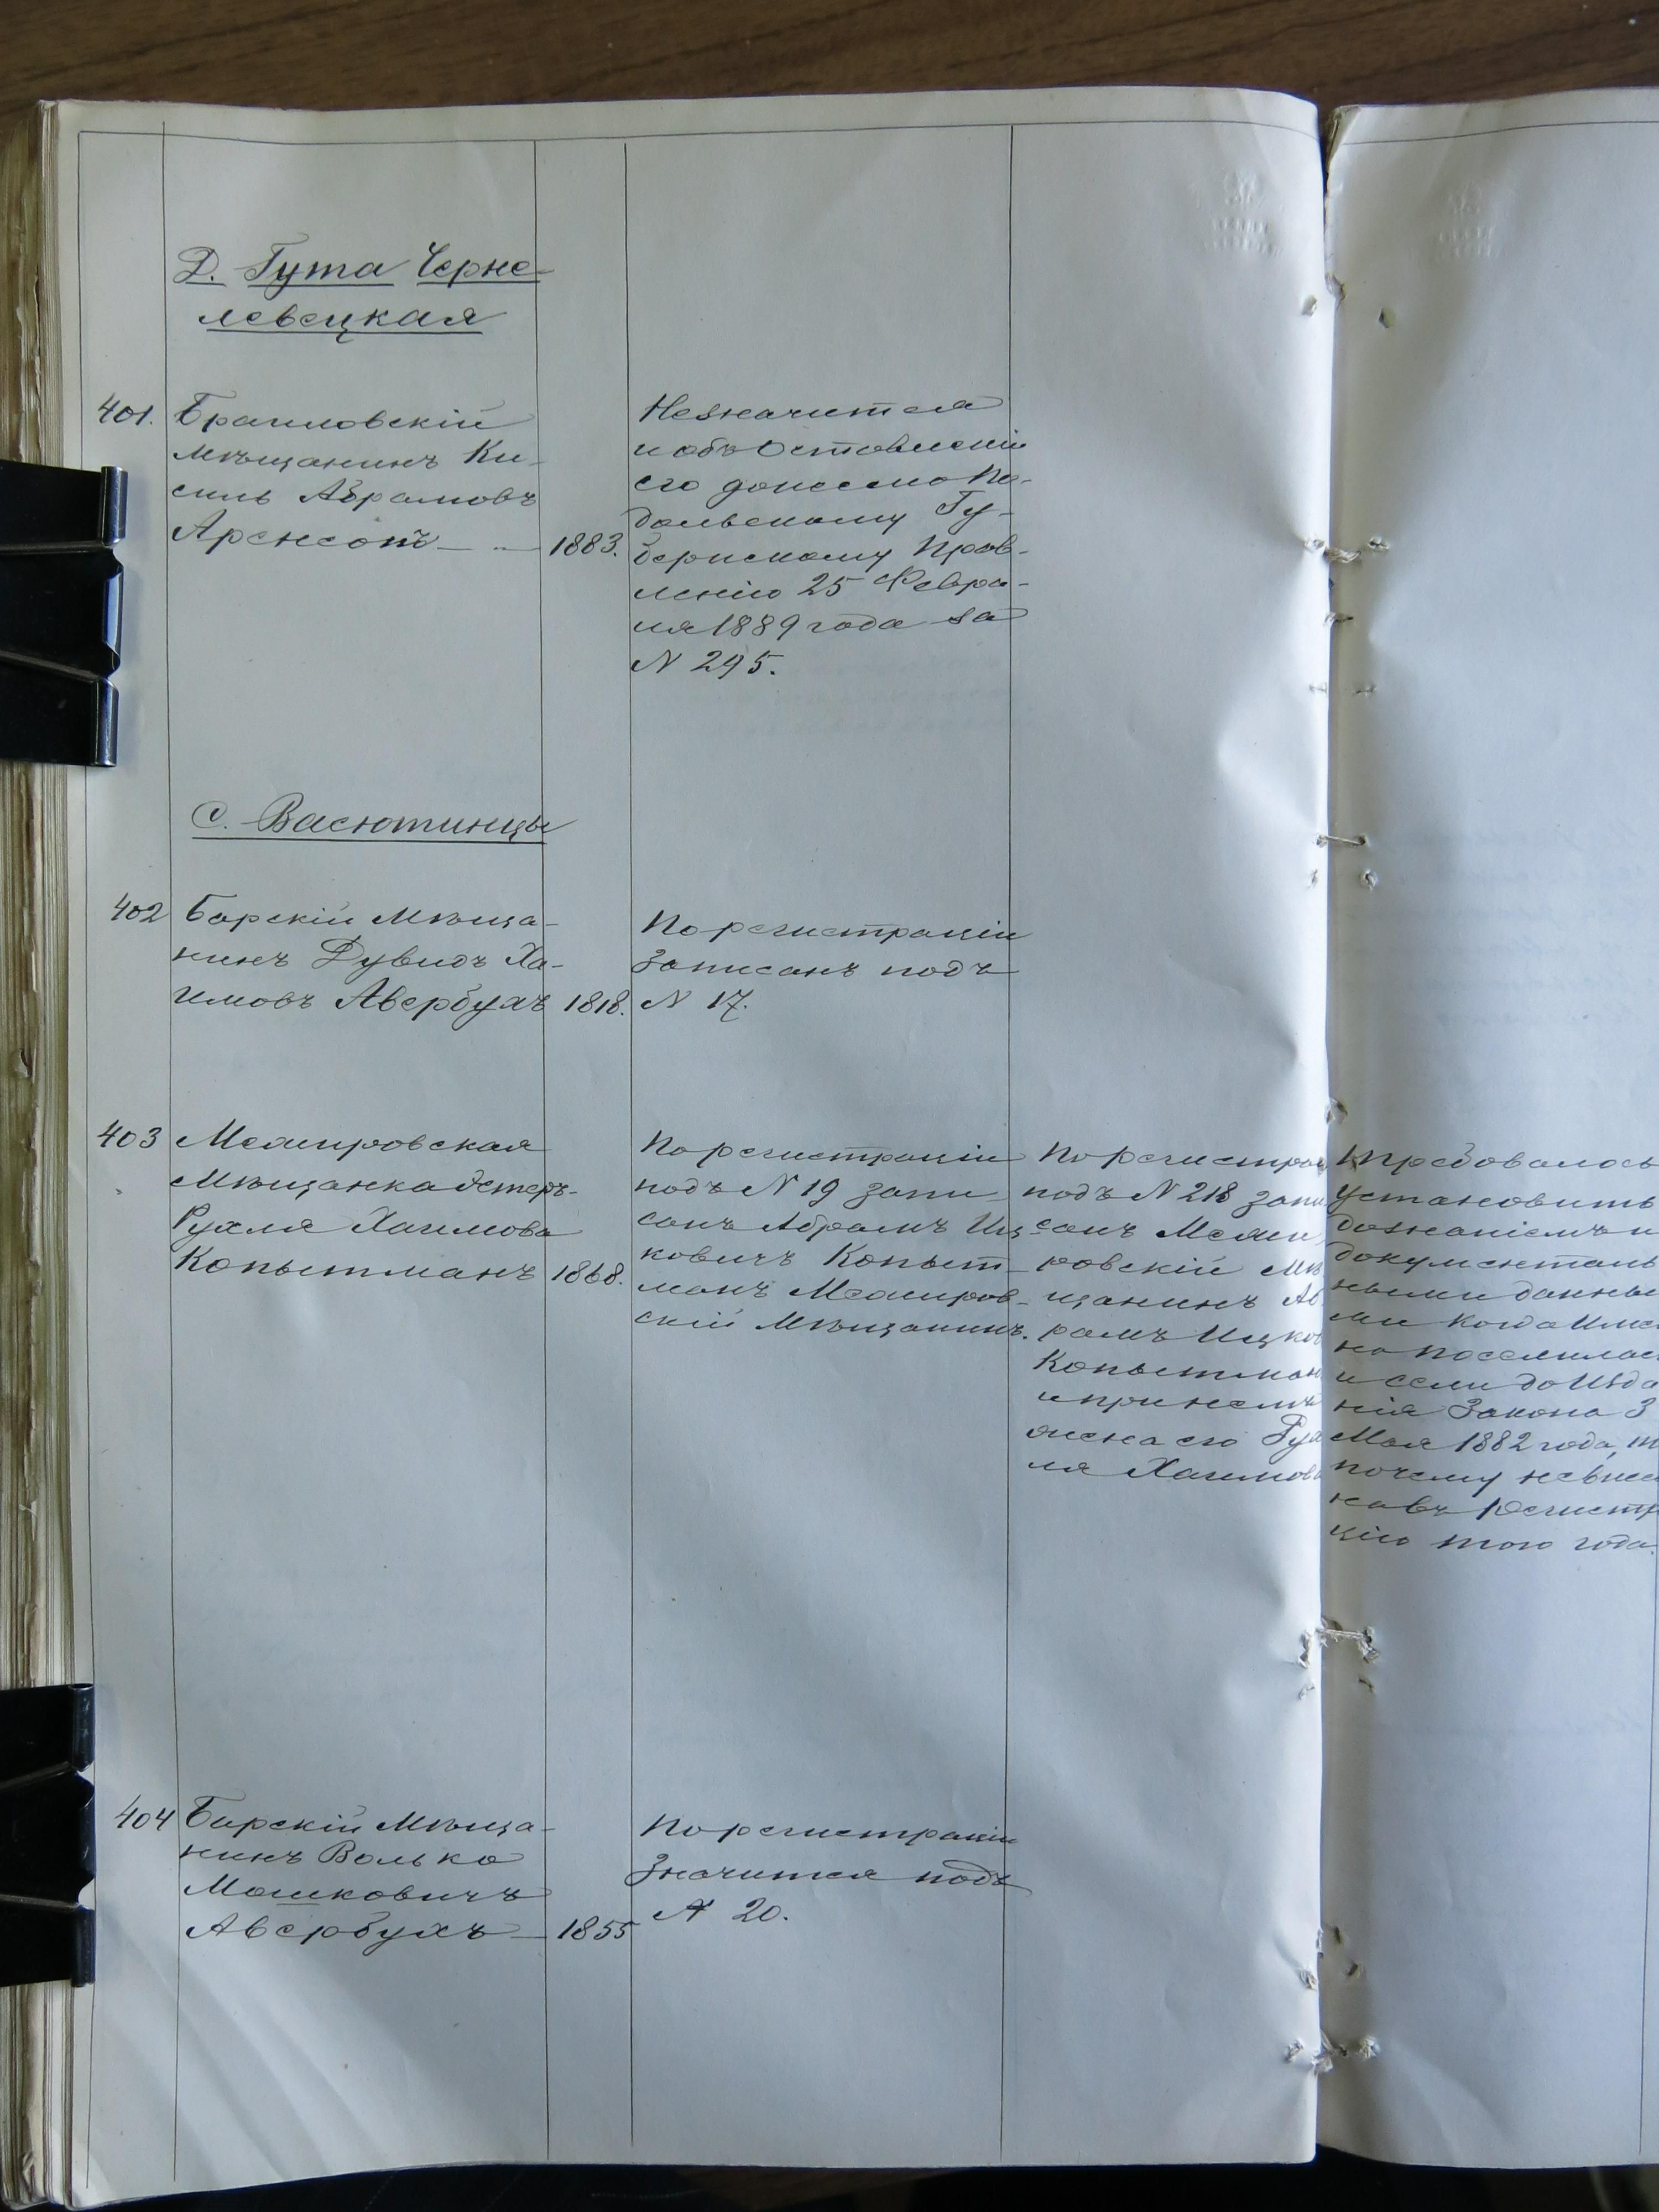 Д. Гута Черне-
левецкая
401. Браиловскій
мѣщанинъ Ки-
силь Абрамовъ
Аренсонъ 1883.
Незначится
и объ оставленіи
его донесено По-
дольскому Гу-
бернскому Прав-
ленію 25 Февра-
ля 1889 года за
N 295.
С. Васютинцы
402 Барскій Мѣща-
нинъ Дувидъ Ха-
имовъ Авербухъ 1818.
По регистраціи
записанъ подъ
N 17.
403 Межировская
Мѣщанка Эстеръ-
Рухля Хаимова
Копытманъ 1868.
По регистраціи
подъ N 19 запи
санъ Абрамъ Иц
ковичъ Копыт-
манъ Межиров-
скій Мѣщанинъ.
По регистра
подъ N 218 запи
санъ Межи
ровскій Мѣ
щанинъ Аб
рамъ Ицков
Копытман
и при немъ
жена его Рух
ля Хаимова
Требовалось
установить
дознаніемъ и
документаль
ными данны
ми когда име
но поселилас
и если до изда
нія Закона 3
Мая 1882 года, т
почему невнес
на въ регистр
цію того года.
404 Барскій Мѣща-
нинъ Волько
Мошковичъ
Авербухъ 1855
По регистраціи
Значится подъ
N 20.